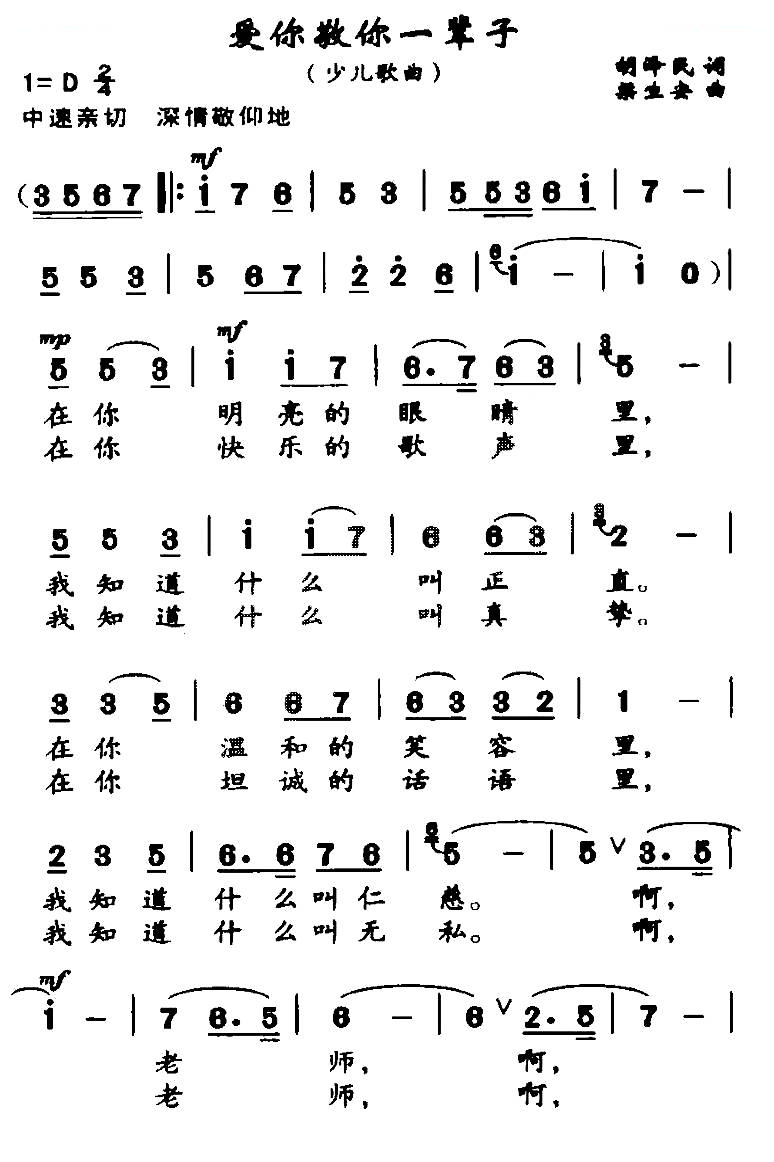 爱你敬你一辈子
（少儿歌曲）
1= D 2/4
胡泽民 词
梁立安 曲
中速亲切 深情敬仰地
mf
(3 5 6 7 ‖: i 7 6 | 5 3 | 5 5 3 6 i | 7 － |
5 5 3 | 5 6 7 | 2 2 6 | 6 i － | i 0 ) |
mp mf
5 5 3 | i i 7 | 6. 7 6 3 | 3 5 － |
在你 明亮的眼睛里，
在你 快乐的歌声里，
5 5 3 | i i 7 | 6 6 3 | 3 2 － |
我知道什么叫正直。
我知道什么叫真挚。
3 3 5 | 6 6 7 | 6 3 3 2 | 1 － |
在你 温和的笑容里，
在你 坦诚的话语里，
2 3 5 | 6. 6 7 6 | 6 5 － | 5 V 3. 5 |
我知道什么叫仁慈。 啊，
我知道什么叫无私。 啊，
mf
i － | 7 6. 5 | 6 － | 6 V 2. 5 | 7 － |
老师， 啊，
老师， 啊，